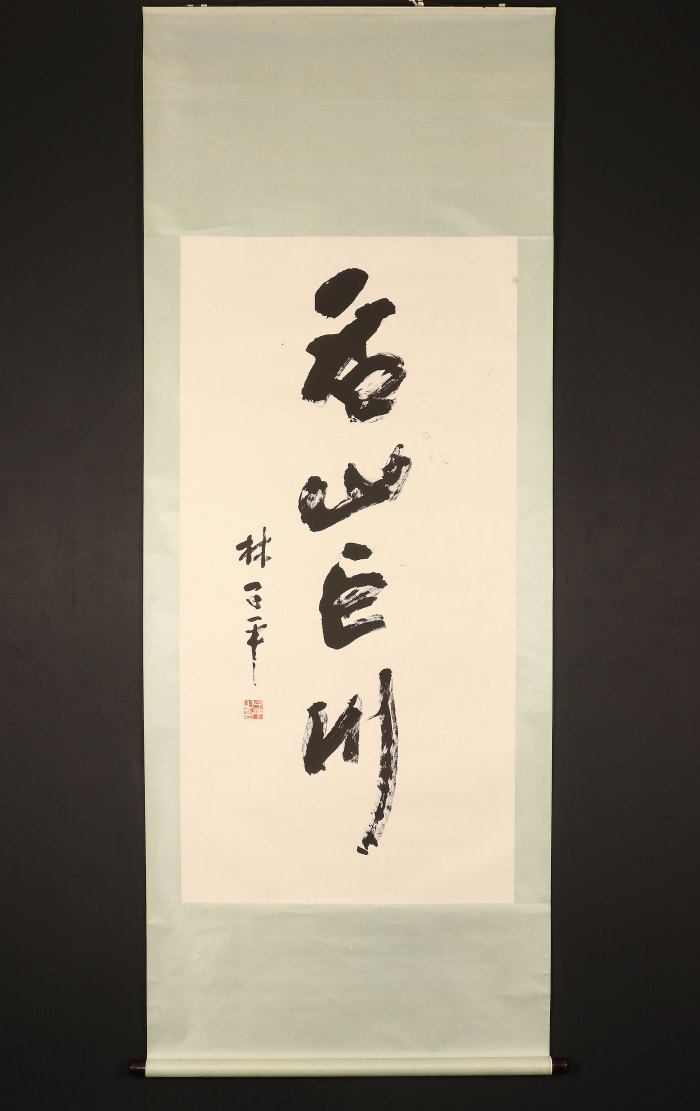 名山巨川
林百平